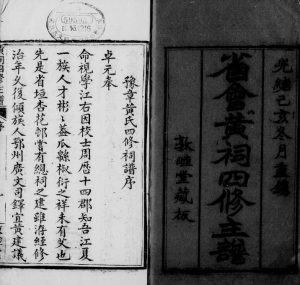 光緒己亥冬月重鐫
省會黃祠四修主譜
敦睦堂藏板
豫章黃氏四修祠譜序
卓元奉
命視學江右因校士周歷十四郡知吾江夏
一族人才彬彬蓋瓜緜椒衍之祥未有艾也
先是省垣杏花邨嘗有總祠之建雖洊經修
治年久復傾族人鄂州廣文司鐸宜黃建議